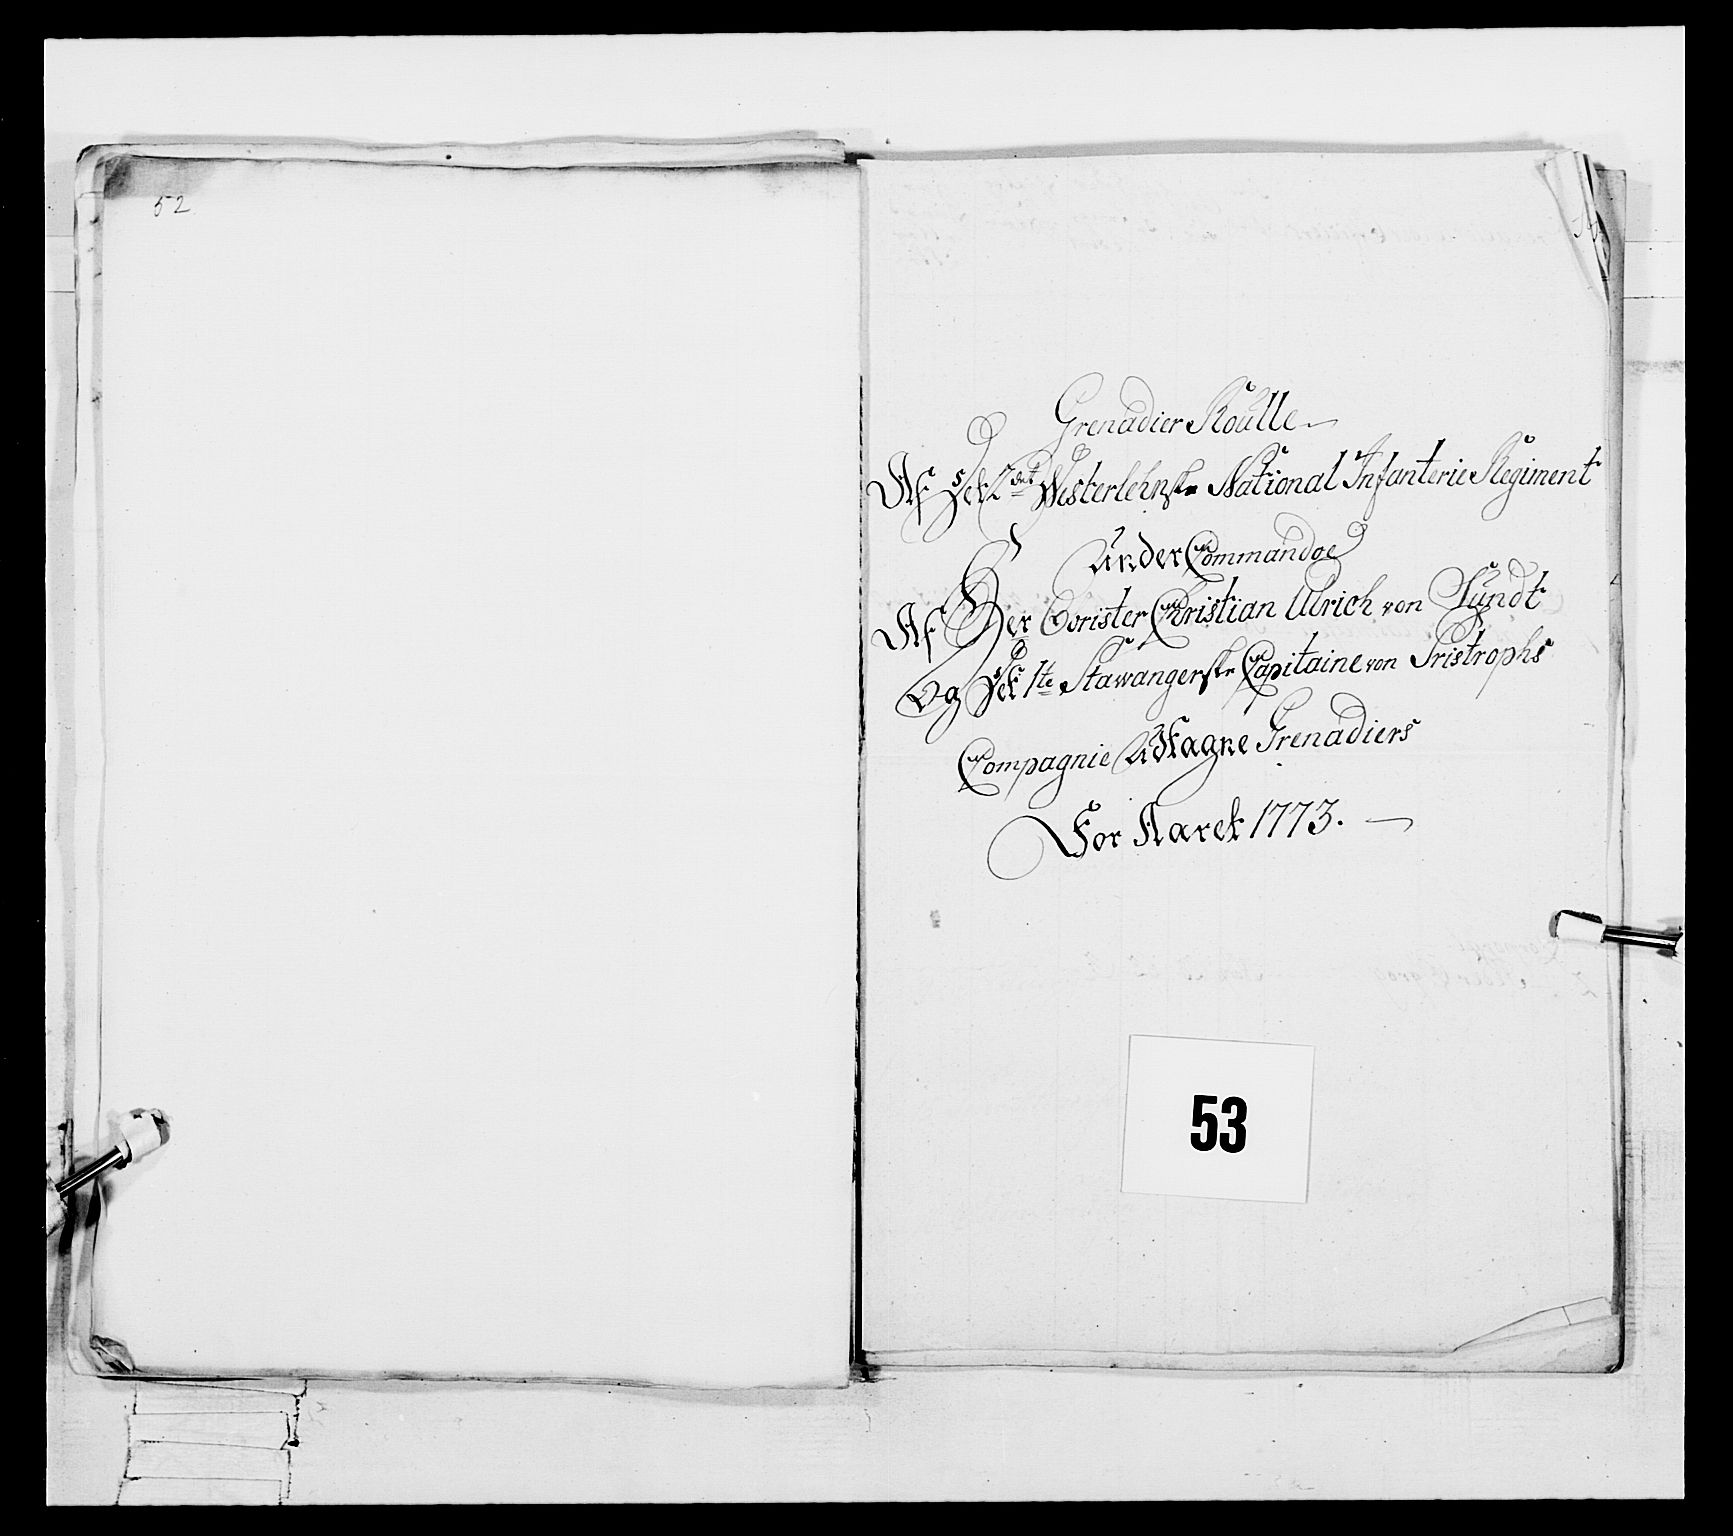 52
Grenadier Roulle
Af Det 2det Westerlehnske National Infanterie Regiment
Under Commandoe
Af Her Oorister Christian Ulrich von Sundt
Og Det 1te Stawangerske Capitaine von Tristrophs
Compagnie Udtagne Grenadiers
For Aaret 1773.
53